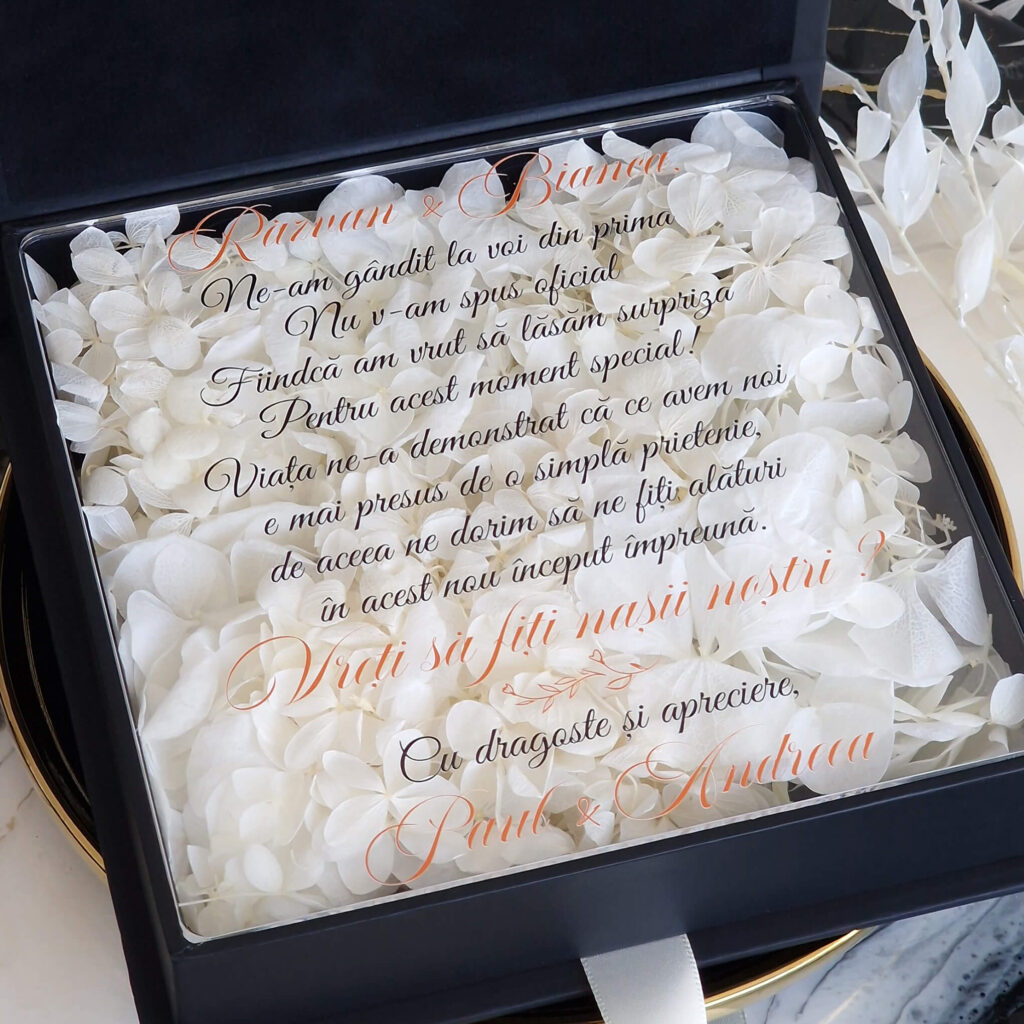 Răzvan & Bianca.
Ne-am gândit la voi din prima
Nu v-am spus oficial
Fiindcă am vrut să lăsăm surpriza
Pentru acest moment special!
Viața ne-a demonstrat că ce avem noi
e mai presus de o simplă prietenie,
de aceea ne dorim să ne fiți alături
în acest nou început împreună.
Vreți să fiți nașii noștri ?
Cu dragoste și apreciere,
Paul & Andreea